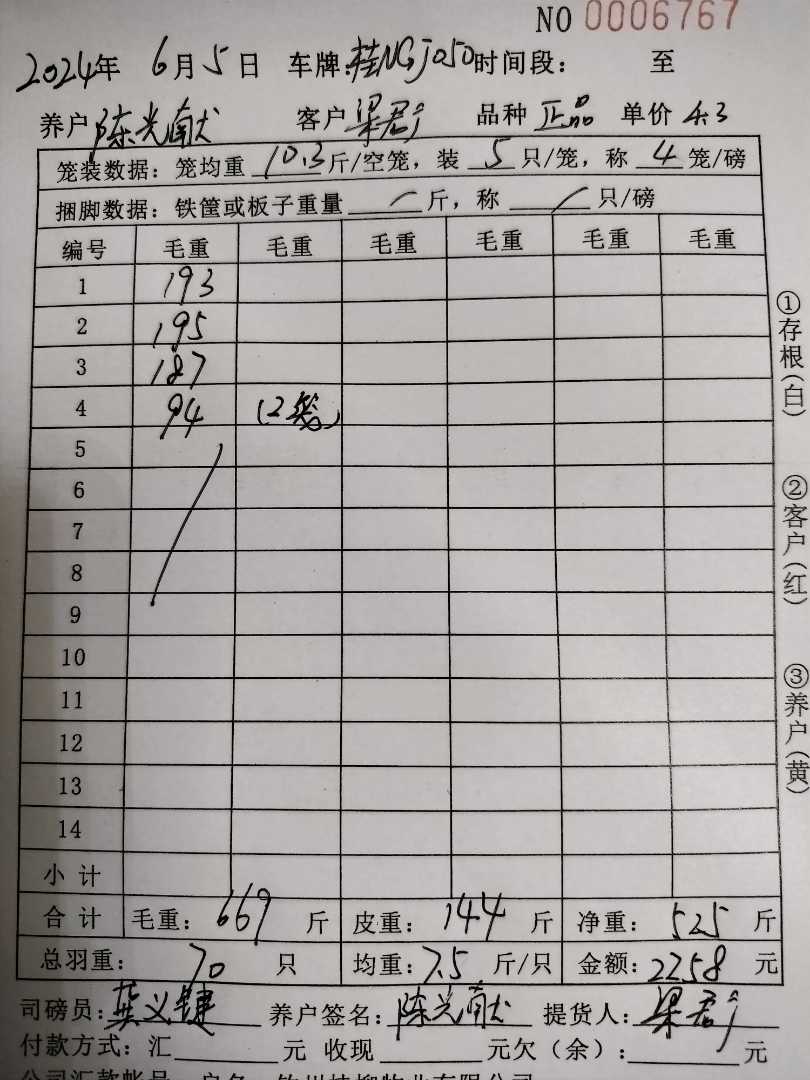 NO 0006767
2024年 6月5日 车牌:桂NGJ050 时间段: 至
养户 陈光献 客户 梁君 品种 正品 单价 4.3
笼装数据: 笼均重 10.3 斤/空笼, 装 5 只/笼, 称 4 笼/磅
捆脚数据: 铁筐或板子重量 / 斤, 称 / 只/磅
编号 毛重 毛重 毛重 毛重 毛重 毛重
1 193
2 195
3 187
4 94 (2笼)
5
6
7
8
9
10
11
12
13
14
小计
合计 毛重: 669 斤 皮重: 144 斤 净重: 525 斤
总羽重: 70 只 均重: 7.5 斤/只 金额: 2258 元
司磅员: 龚义键 养户签名: 陈光献 提货人: 梁君
付款方式: 汇 元 收现 元欠(余): 元
①存根(白)
②客户(红)
③养户(黄)